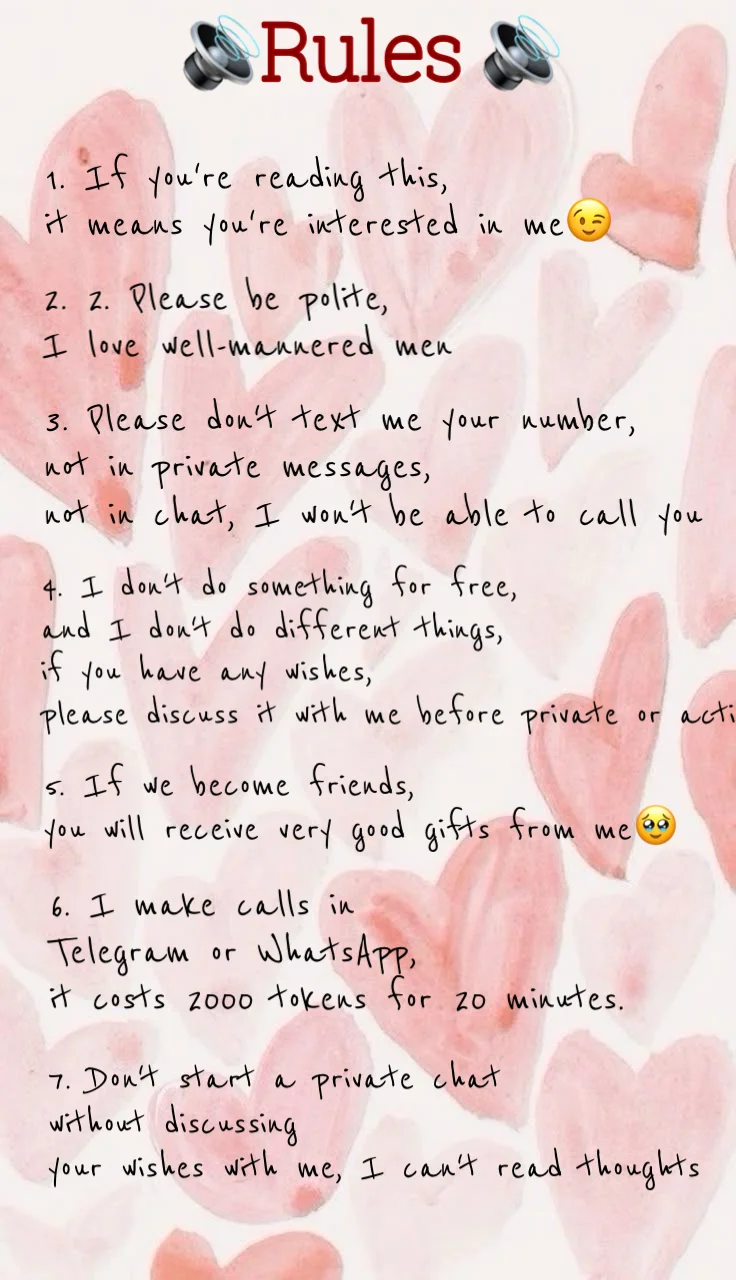 🔊Rules 🔊
1. If you're reading this,
it means you're interested in me😉
2. 2. Please be polite,
I love well-mannered men
3. Please don't text me your number,
not in private messages,
not in chat, I won't be able to call you
4. I don't do something for free,
and I don't do different things,
if you have any wishes,
please discuss it with me before private or acti
5. If we become friends,
you will receive very good gifts from me🥹
6. I make calls in
Telegram or WhatsApp,
it costs 2000 tokens for 20 minutes.
7. Don't start a private chat
without discussing
your wishes with me, I can't read thoughts